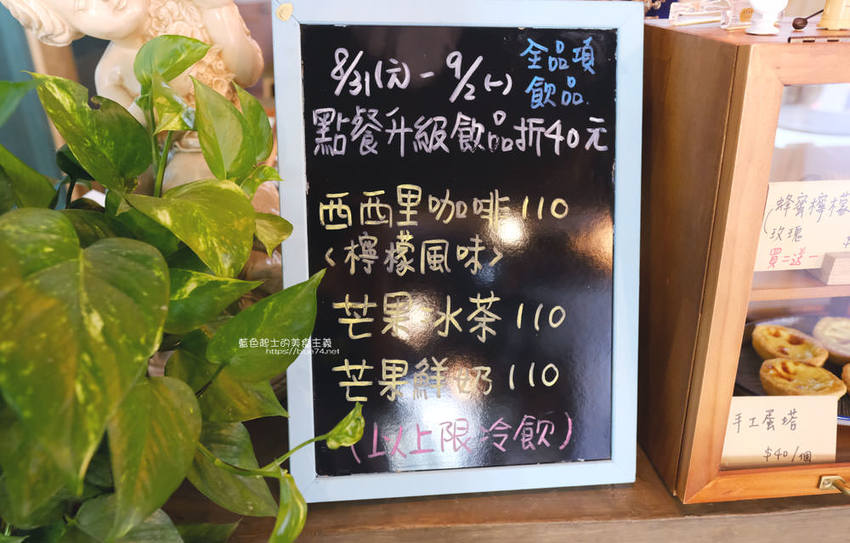 8/31(六)-9/2(一)
全品項
飲品
點餐升級飲品折40元
西西里咖啡 110
<檸檬風味>
芒果冰茶 110
芒果鮮奶 110
(以上限冷飲)
蜂蜜檸檬
(玫瑰
買二送一
手工蛋塔
$40/個
藍色起士的美食主義
https://blue74.net